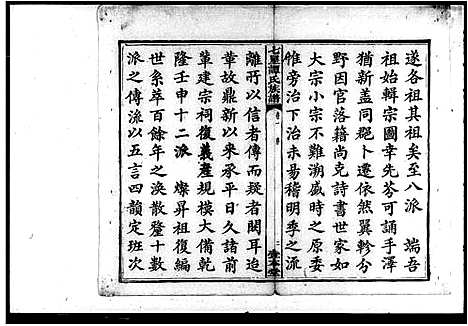 遂各祖其祖矣至八派 端吾
祖始輯宗圖幸先芬可誦手澤
猶新蓋同郡卜遷依然翼軫分
野因官落籍尚克詩書世家如
大宗小宗不難溯威時之原委
惟旁治下治未易稽明季之派
七里譚氏族譜
離所以信者傳而疑者闕耳迨
華故鼎新以來承平日久諸前
輩建宗祠復義產規模大備乾
隆壬申十二派 燦昇祖復偹
世糸萃百餘年之渙散釐十數
派之傳派以五言四韻定班次